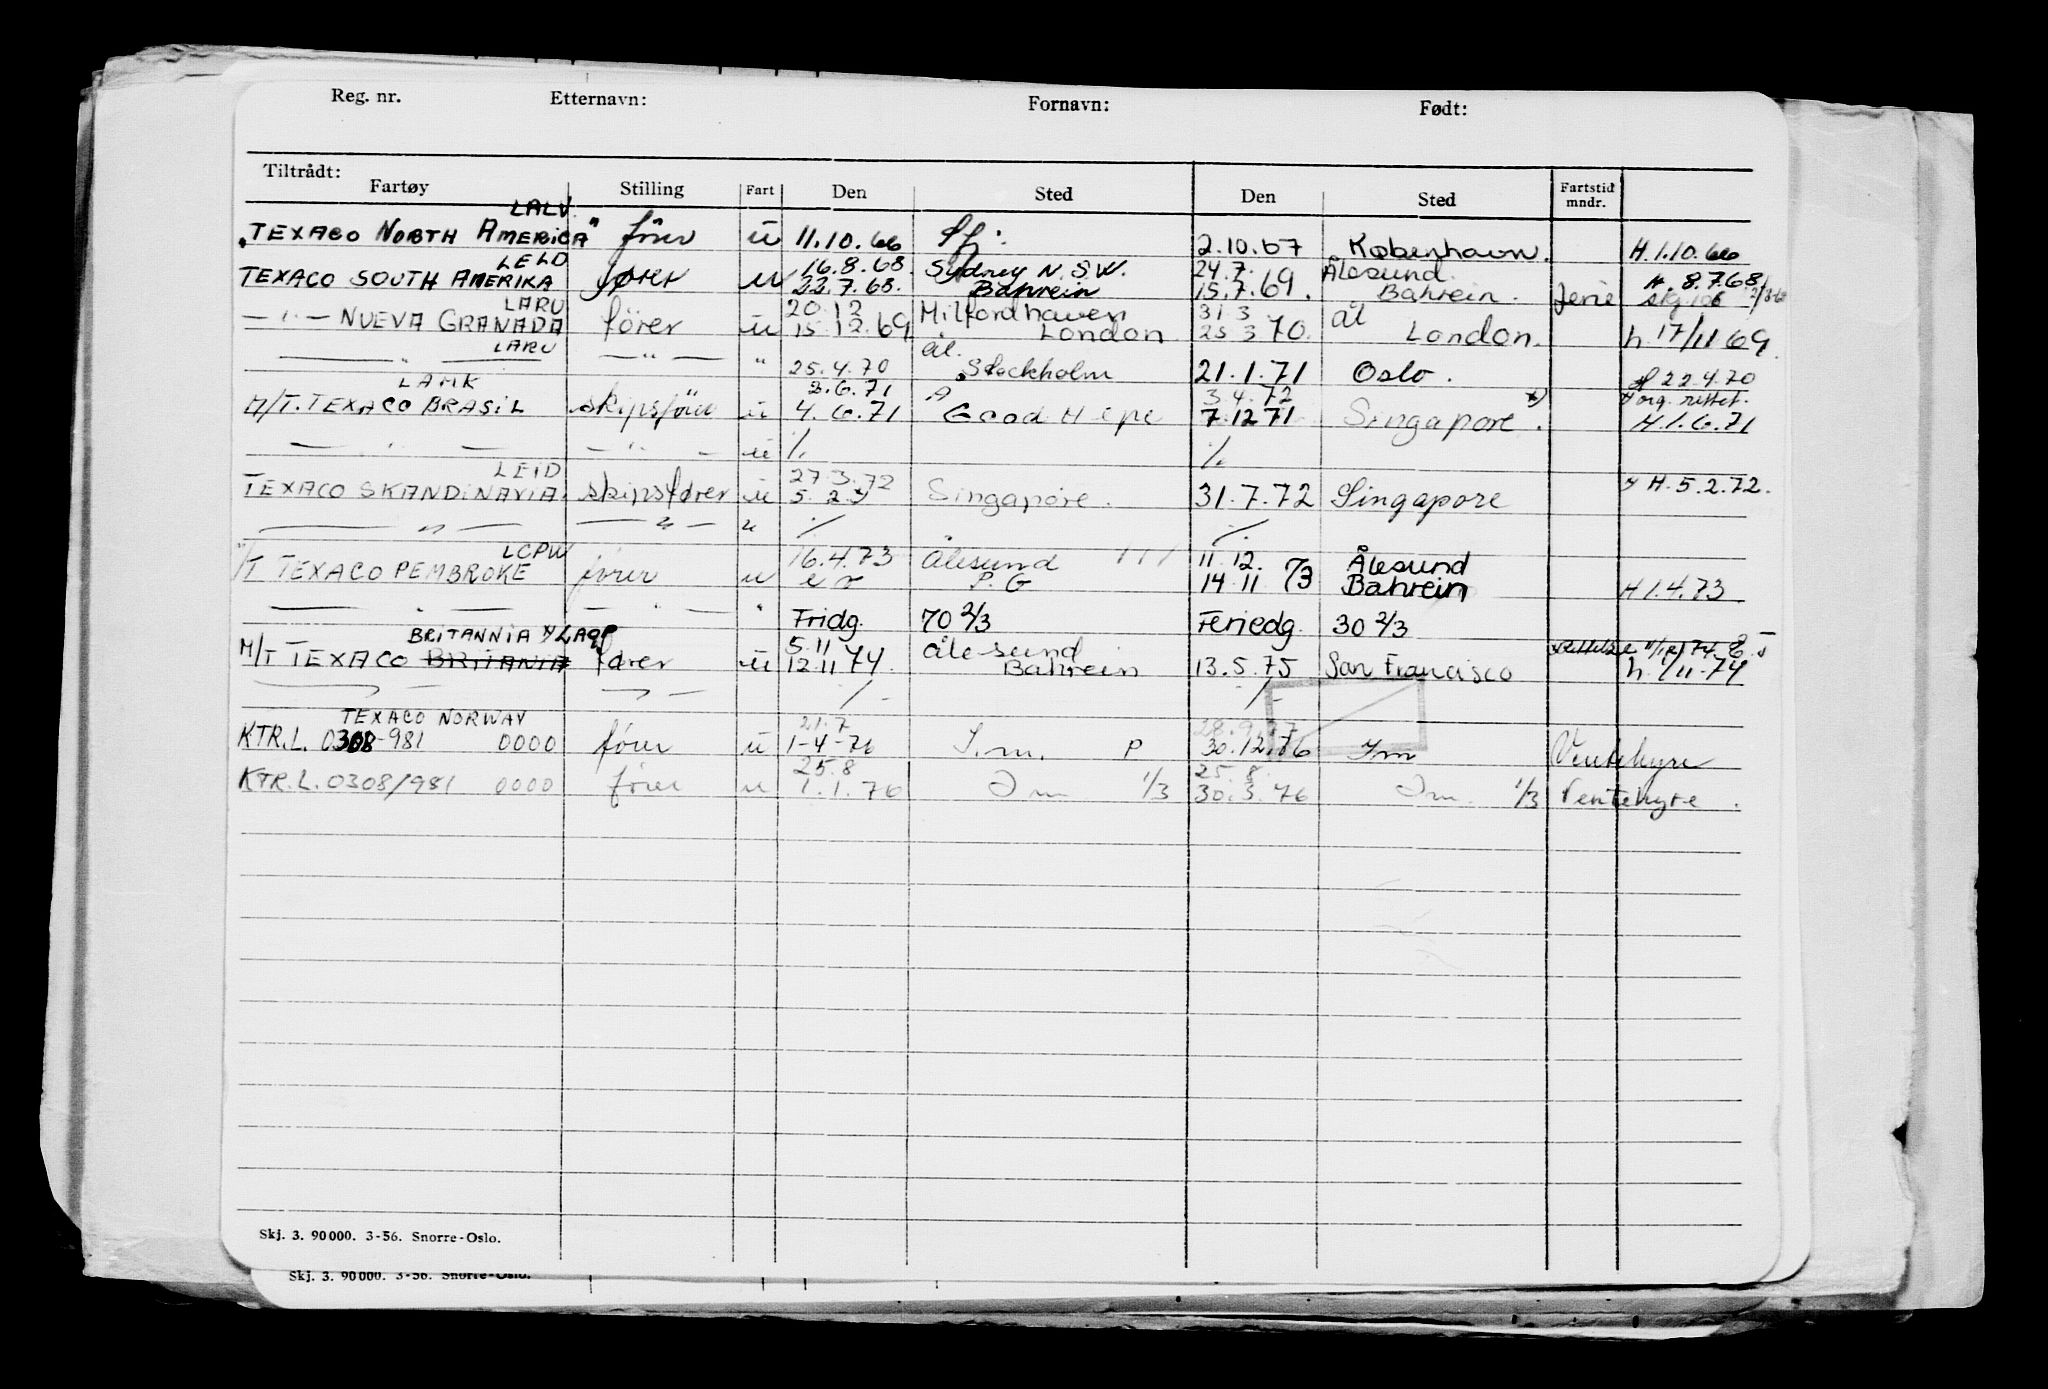 Reg. nr. Etternavn: Fornavn: Født:
Tiltrådt:
Fartøy Stilling Fart Den Sted Den Sted Fartstid mndr.
LALV
"TEXACO NORTH AMERICA" förer ü 11.10.66 2.10.67 København. H 1.10.66
LELD 16.8.68. Sydney N.S.W. 24.7. Ålesund.
TEXACO SOUTH AMERIKA fører u 22.7.68. Bahrein 15.7.69. Bahrein. ferie H. 8.7.68
LARU 20.12 Milfordhaven 31.3 ål
— " — NUEVA GRANADA förer ü 15.12.69 London 25.3.70. London. h. 17/11 69
LARU ål.
— " — — " — " 25.4.70 Stockholm 21.1.71 Oslo. H 22.4.70
LAMK 3.6.71 3.4.72
M/T. TEXACO BRASIL skipsförer ü 4.6.71 Good Hope 7.12.71 Singapore. H.1.6.71
— " — — " — ü %. %.
LEID 27.3.72
TEXACO SKANDINAVIA. skipsfører ü 5.2. Singapore. 31.7.72 Singapore H.5.2.72.
— " — — " — u % %.
LCPW 16.4.73 Ålesund 11.12. Ålesund
/T TEXACO PEMBROKE fører u P.G 14.11 73 Bahrein H 1.4.73
— " — — " — " Fridg. 70 2/3 Feriedg. 30 2/3
BRITANNIA LAQP 5.11 ålesund
M/T TEXACO BRITANIA fører ü 12.11 74 Bahrein 13.5.75 San Francisco h. 1/11-74
TEXACO NORWAY 21.7 28.9.77
KTR.L. 0308-981 0000 förer ü 1-4-76 I.m. P 30.12.76 Im Ventehyre
25.8 25.8.
KTR.L. 0308/981 0000 förer u 1.1.76 Im 1/3 30.3.76 Im. 1/3 Ventehyre.
Skj. 3. 90 000. 3-56. Snorre-Oslo.
Skj. 3. 90 000. 3-56. Snorre-Oslo.